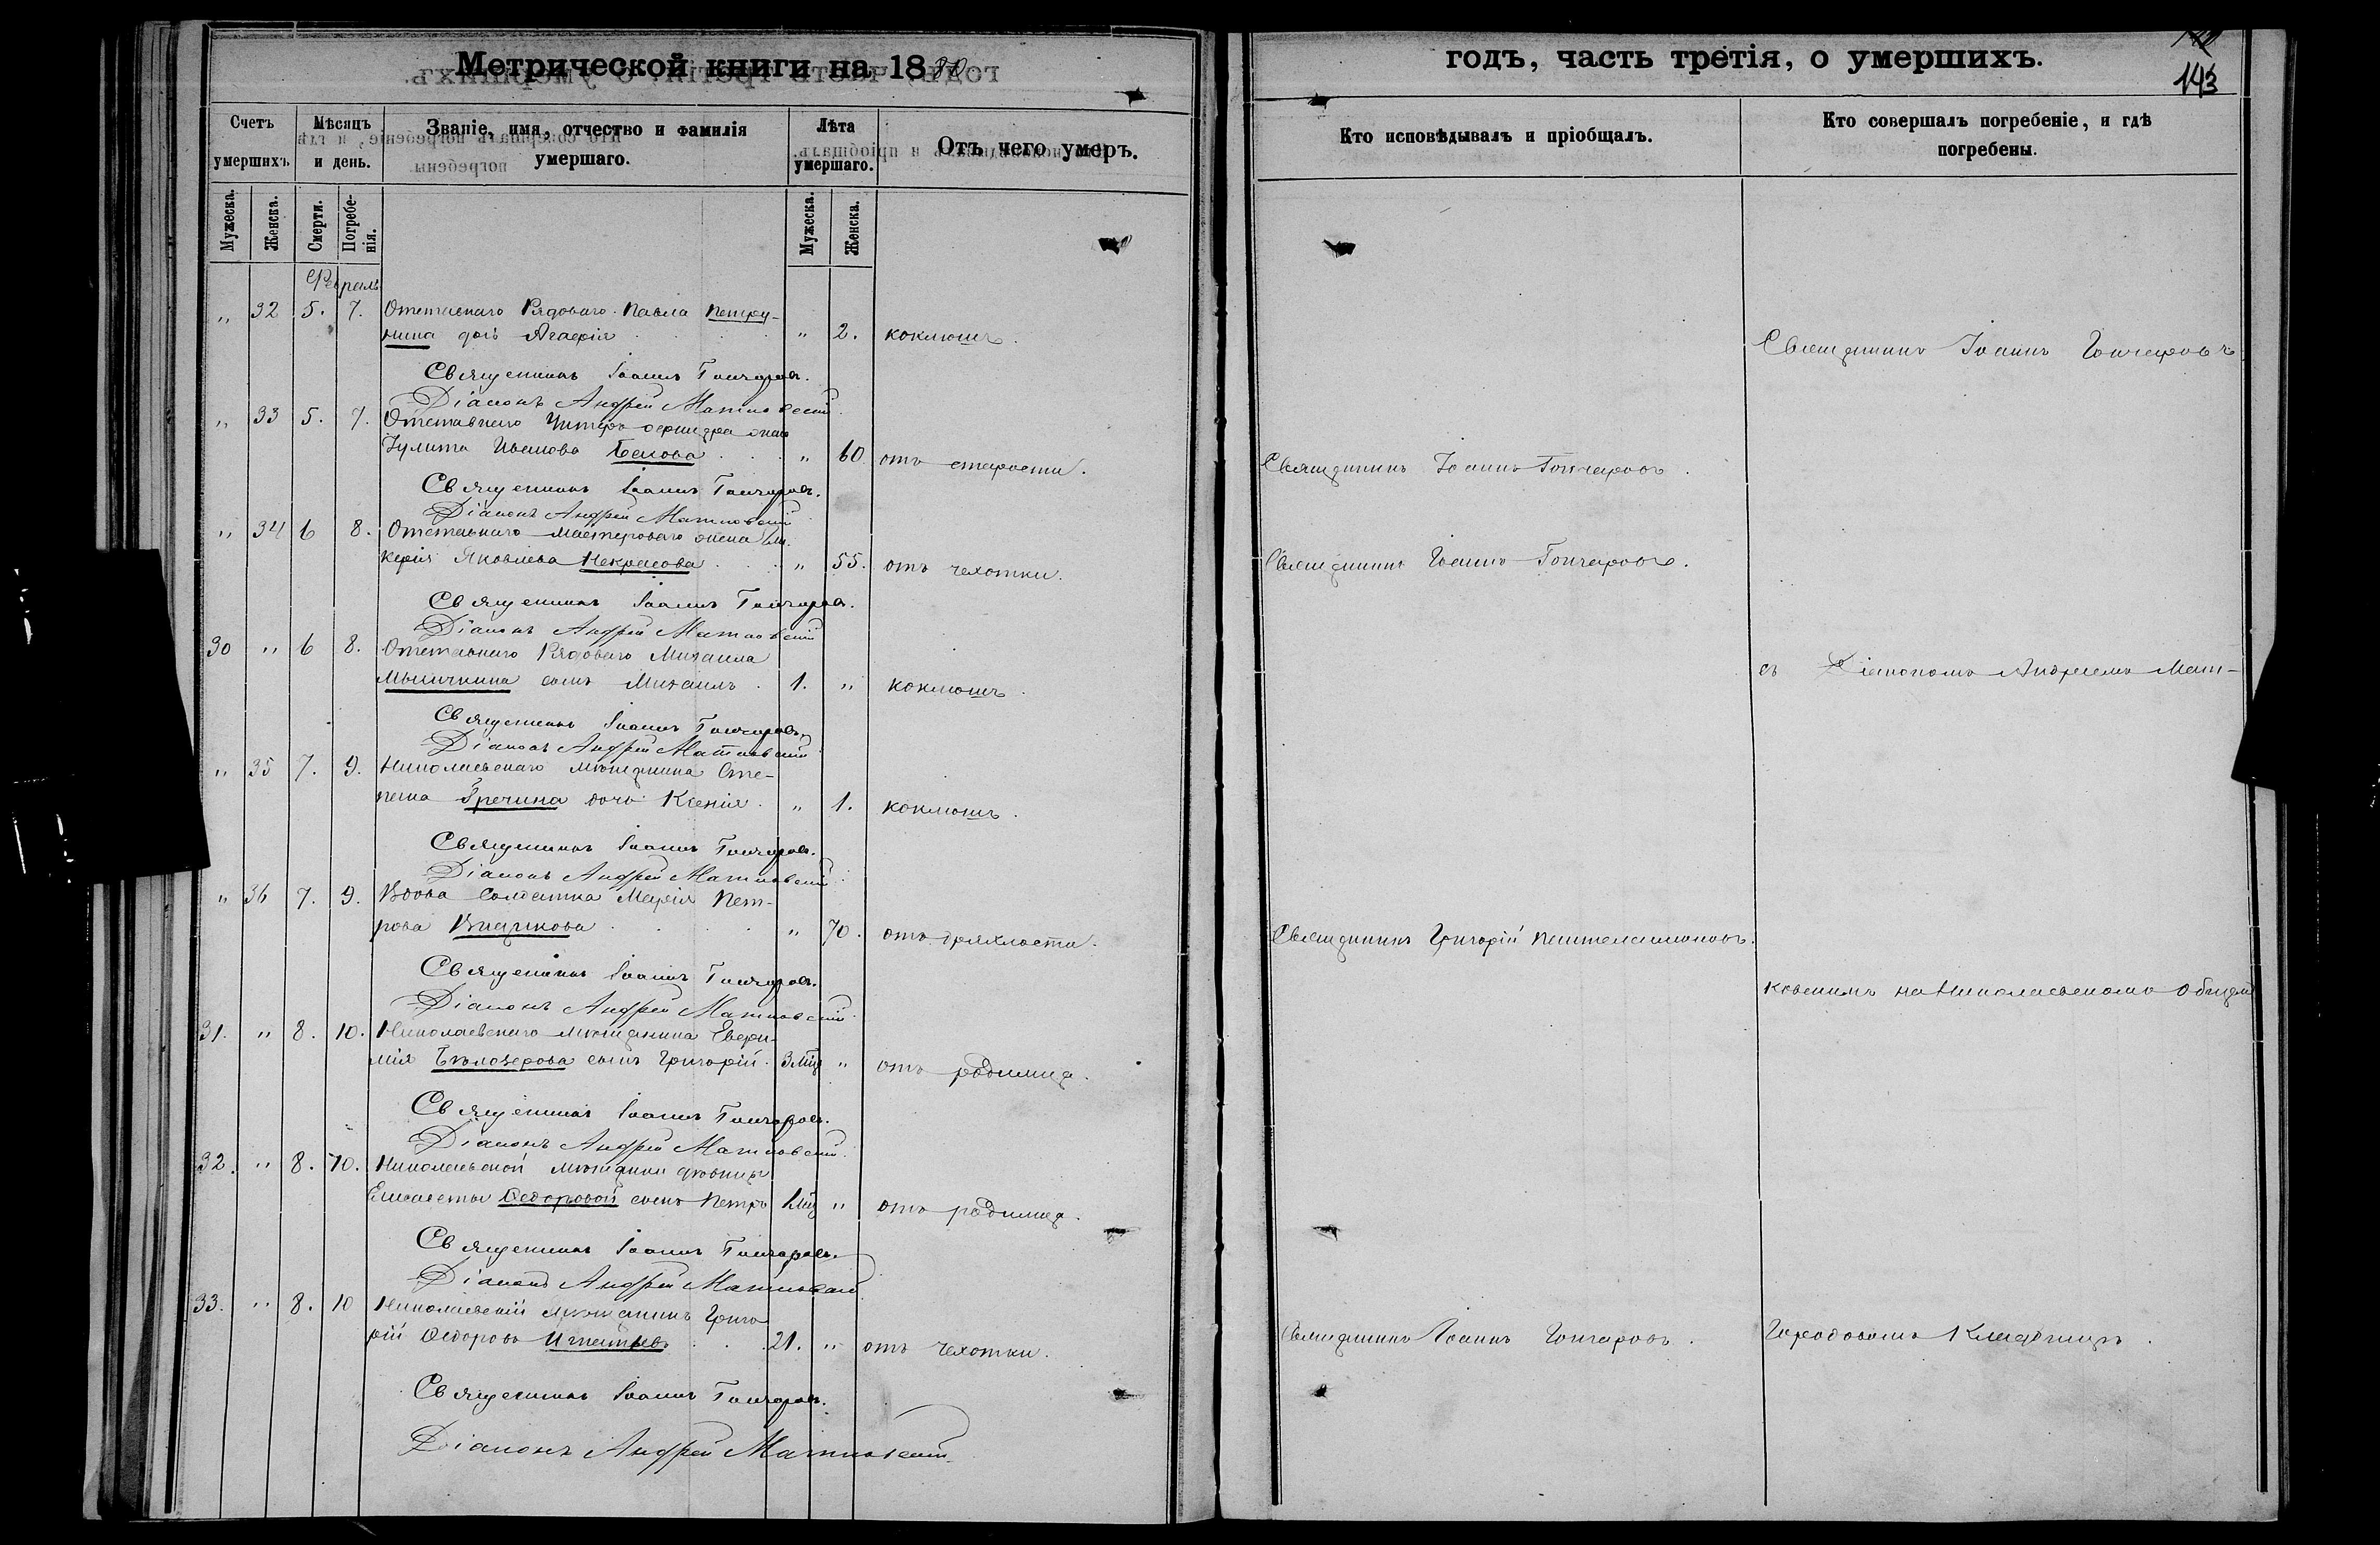 Метрической книги на 1880
годъ, часть третія, о умершихъ.
143
Счетъ умершихъ.
Мѣсяцъ и день.
Званіе, имя, отчество и фамилія умершаго.
Лѣта умершаго.
Отъ чего умеръ.
Кто исповѣдывалъ и пріобщалъ.
Кто совершалъ погребеніе, и гдѣ погребены.
Мужеска.
Женска.
Смерти.
Погребенія.
Мужеска.
Женска.
Февраль
" 32 5. 7. Отставнаго Рядоваго Павла Петру-
нина дочь Агафія " 2. коклюшъ.
Священникъ Іоаннъ Гончаровъ
Священникъ Іоаннъ Гончаровъ.
Діаконъ Андрей Матковскій
" 33 5. 7. Отставнаго Унтеръ офицера жена
Іулита Иванова " 60 отъ старости. Священникъ Іоаннъ Гончаровъ.
Священникъ Іоаннъ Гончаровъ.
Діаконъ Андрей Матковскій
" 34 6 8. Отставнаго мастероваго жена Гли-
керія Яковлева Некрасова " 55. отъ чехотки. Священникъ Іоаннъ Гончаровъ.
Священникъ Іоаннъ Гончаровъ.
Діаконъ Андрей Матковскій
30 " 6 8. Отставнаго Рядоваго Михаила
сынъ Михаилъ. 1. " коклюшъ.
съ Діакономъ Андреемъ Мат-
Священникъ Іоаннъ Гончаровъ.
Діаконъ Андрей Матковскій
" 35 7. 9. Николаевскаго мѣщанина Сте-
пана Гречина дочь Ксенія. " 1. коклюшъ.
Священникъ Іоаннъ Гончаровъ.
Діаконъ Андрей Матковскій
" 36 7. 9. Вдова Солдатка Марія Пет-
рова " 70. отъ дряхлости. Священникъ Григорій Пантелеимоновъ.
Священникъ Іоаннъ Гончаровъ.
ковскимъ на Николаевскомъ Общемъ
Діаконъ Андрей Матковскій
31. " 8. 10. Николаевскаго мѣщанина Евфи-
мія Бѣлозерова сынъ Григорій. 3 мца " отъ родимца.
Священникъ Іоаннъ Гончаровъ.
Діаконъ Андрей Матковскій
32. " 8. 10. Николаевской мѣщанки дѣвицы
Елисаветы Ѳедоровой сынъ Петръ 1 мца " отъ родимца.
Священникъ Іоаннъ Гончаровъ.
Діаконъ Андрей Матковскій
33. " 8. 10 Николаевскій мѣщанинъ Григо-
рій Ѳедоровъ Игнатьевъ 21. " отъ чехотки. Священникъ Іоаннъ Гончаровъ. Городовомъ Кладбищѣ.
Священникъ Іоаннъ Гончаровъ.
Діаконъ Андрей Матковскій